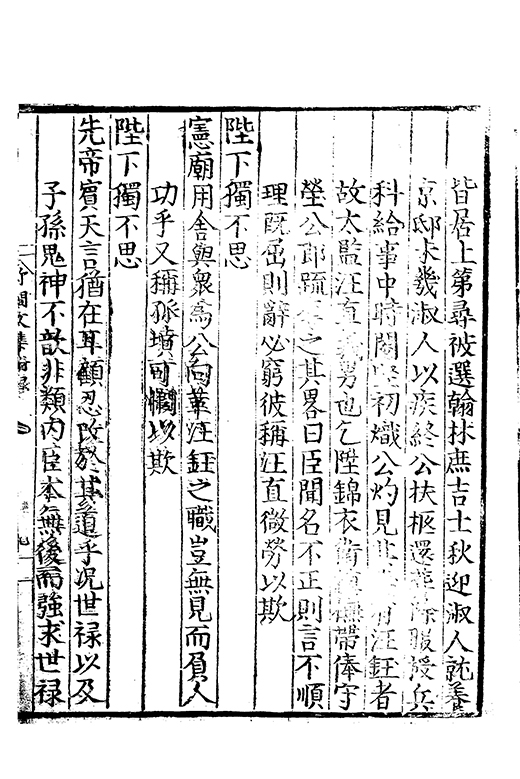 皆居上第尋被選翰林庶吉士秋迎淑人就養
京邸未幾淑人以疾終公扶柩還葬除服授兵
科給事中時閹竪初熾公灼見其有汪鈺者
故太監汪直義男也乞陞錦衣衛鎮撫帶俸守
塋公即疏之其畧曰臣聞名不正則言不順
理既屈則辭必窮彼稱汪直微勞以欺
陛下獨不思
憲廟用舍與衆為公向華汪鈺之職豈無見而負人
功乎又稱孤墳可憫以欺
陛下獨不思
先帝賓天言猶在耳顧忍改於其道乎况世祿以及
子孫鬼神不歆非類内臣本無後而強求世祿